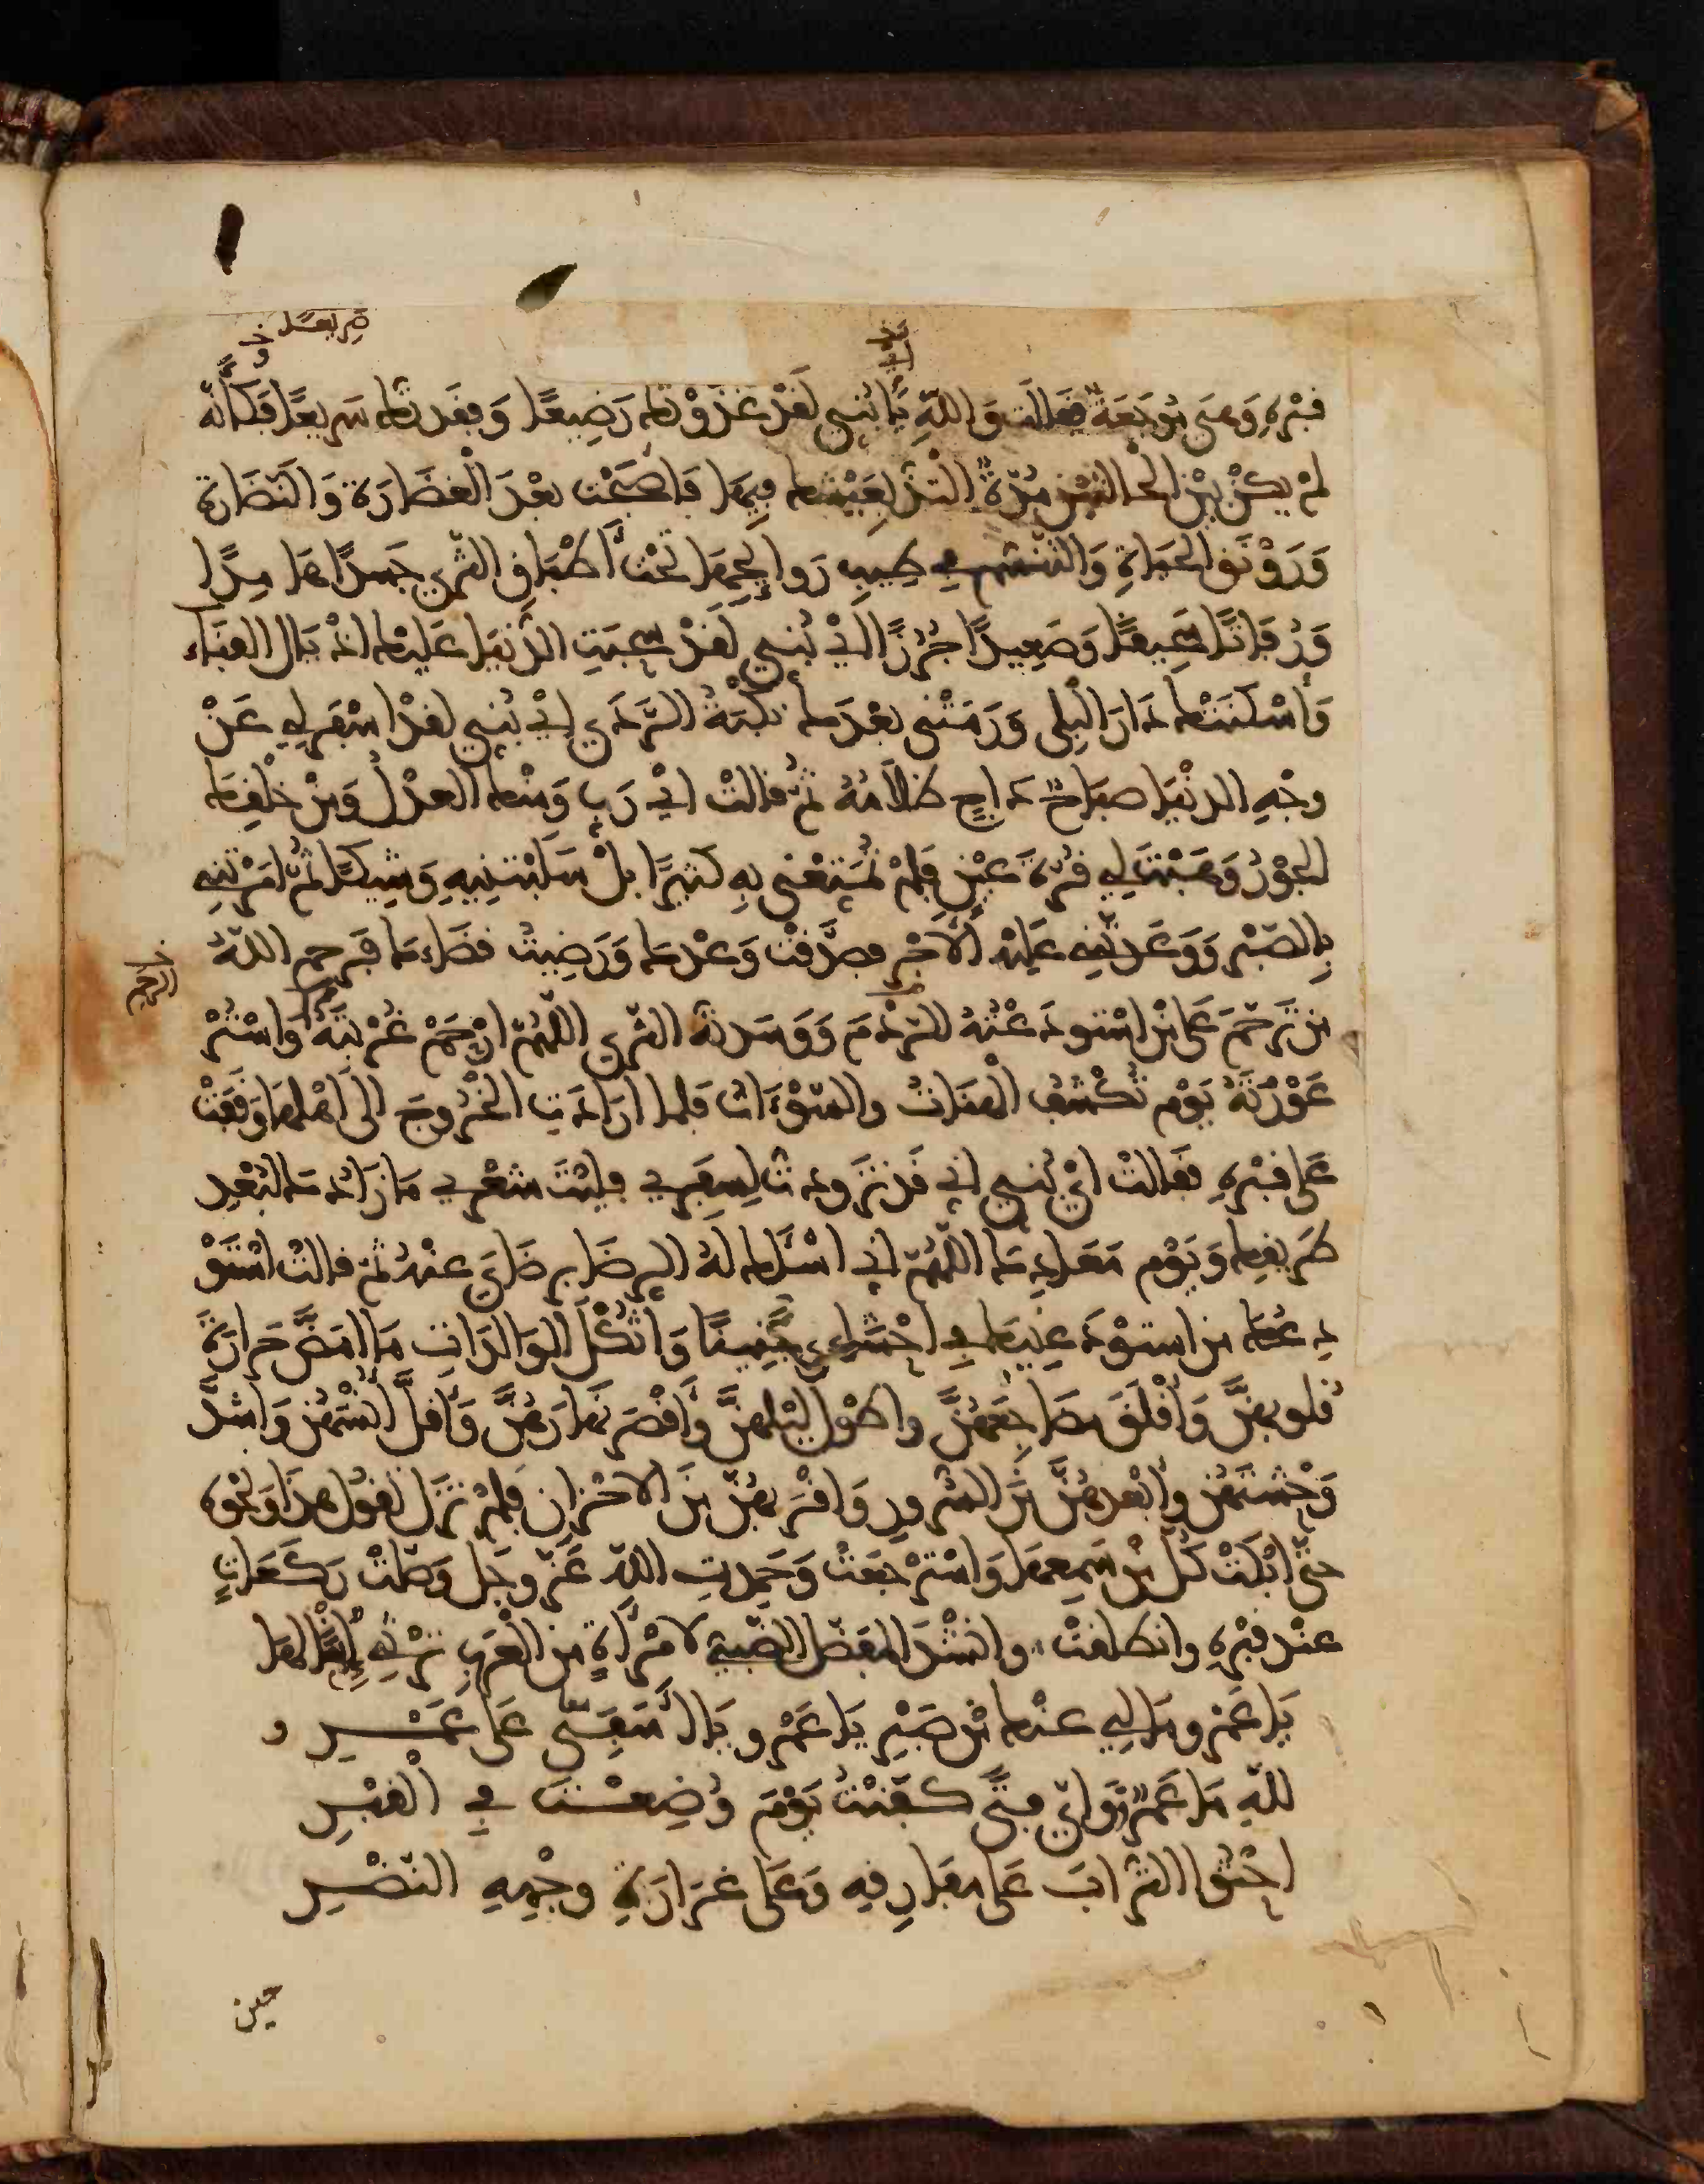 قبره وَهيَ مُوجَعَةٌ فقالت وَاللّهِ يَا بُنَيِّ لَقَدْ غَذَوْتك رَضِيعًا وَفقدتك سَرِيعًا فكَأنّه
لمْ يكنْ بيْنَ الحالتَيْن مُدّةٌ التذّ بعَيْشك فيهَا فأصْبَحْتَ بعْدَ الْغضَارَة وَالنّضَارَة
وَرَوْنَق الحيَاةِ وَالتّنسّم في طِيب رَوائِحِهَا تحْتَ أطْبَاق الثّرَى جَسَدًا هَامِدًا
وَرُفَاتًا سَحِيقًا وَصَعِيدًا جُرُزًا أيْ بُنَيِّ لَقدْ سحبَتِ الدُّنيَا عَليْك اذْيَال الفنَاء
وَأسْكنَتْك دَارَ البِلى وَرَمَتْني بعْدَك نكْبَةُ الرَّدَى ايْ بُنَيِّ لقدْ اسْفرَ لِي عَنْ
وجْهِ الدنْيَا صبَاحٌ دَاجٍ ظلاَمُهُ ثمّ قالتْ ايْ رَبِّ وَمنْك العدْلُ وَمِنْ خلْقِك
الجوْرُ وَهَبْتَهُ لِي قُرّةَ عَيْنٍ فلمْ تُمَتّعْني بهِ كثيرًا بلْ سَلبْتنِيهِ وَشِيكًا ثمّ امَرْتَنِي
بِالصّبْر وَوَعَدتّنِي عَليْه الأجْرَ فصدَّقتُ وَعْدك وَرَضِيتُ قضَاءك فرحم اللهُ
من تَرَحّمَ عَلى مَن اسْتودَعْتُهُ الرّدْمَ وَوَسّدتّهُ الثرَى اللّهُمّ ارْحَمْ غُرْبَتَهُ وَاسْتُرْ
عَوْرَتَهُ يَوْم تُكْشَفُ الْهنَاتُ والسّوْءَاتُ فلما ارَادَت الخُرُوجَ الى اهْلهَا وَقفَتْ
عَلى قبْرهِ فقالتْ ايْ بُنَيِّ اني قَدْ تزَودتُ لِسفَرِي فليْتَ شعْرِي مَا زَادُك لبُعْدِ
طَريقِك وَيَوْم مَعَادِك اللهُمّ اني اسْألك لهُ الرضَا برضَايَ عنْهُ ثمّ قالتْ اسْتَوْ
دعتُك من استَوْدَعَنِيكَ فِي احْشَائِي جَنِينًا وَاثُكْلَ الوَالدَاتِ مَا امَضَّ حَرَارَةَ
قلوبهنَّ وَأقْلَقَ مضَاجِعَهُنَّ واطْوَل ليْلهنَّ وَأقْصَرَ نهَارَهُنَّ وَأقلَّ أُنْسَهُنّ وَاشدَّ
وَحْشتَهُنّ وأبْعدهُنَّ منَ السّرورِ وَاقْرَبَهُنّ منَ الاحْزان فلمْ تزَلْ تقولُ هذَا وَنحْوَهُ
حتّى ابْكَتْ كلّ مَنْ سَمِعهَا وَاسْترْجَعَتْ وَحَمِدتِ اللّهَ عَزّ وجَل وَصلّتْ رَكَعَاتٍ
عنْد قبْرهِ وانطلقتْ وانشدَ المفضّل الضبّي لامْرَأةٍ من العَرب تَرْثي ابْنًا لهَا
يَا عَمْرو مَا لي عنْك منْ صَبْرِ يَا عَمْرو يَا أسَفِي عَلى عَمْــرِو
للّهِ مَا عَمْرٌو وَايّ فتىً كفّنْتُ يَوْمَ وُضِعْتَ في الْقبْرِ
احْثُوا التّرابَ عَلى مفَارِقِهِ وَعَلى غَرَارَةِ وجْهِهِ النّضْرِ
حين